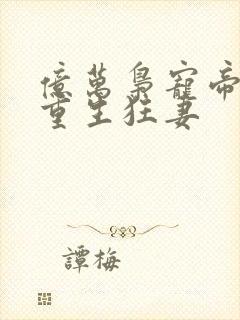 億萬梟寵帝
重生狂妻
譚梅